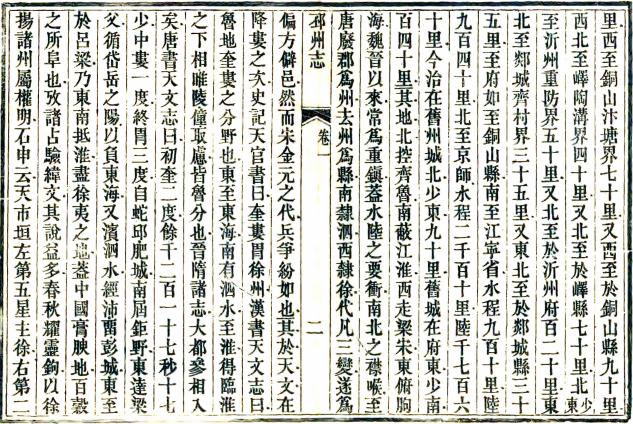 里西至銅山汴塘界七十里又西至於銅山縣九十里
西北至嶧陶溝界四十里又西北至於嶧縣七十里北少東
至沂州重防界五十里又北至於沂州府百二十里東
北至郯城齊村界三十五里又東北至於郯城縣三十
五里至府如至銅山縣南至江寧省水程九百十里陸
九百四十里北至京師水程二千百十里陸千七百六
十里今治在舊州城北少東九十里舊城在府東少南
百四十里其地北控齊魯南蔽江淮西走梁宋東俯朐
海魏晉以來常爲重鎮蓋水陸之要衝南北之襟喉至
唐廢郡爲州去州爲縣南隸泗西隸徐代凡三變遂爲
邳州志
卷一
二
偏方僻邑然而宋金元之代兵爭紛如也其於天文在
降婁之次史記天官書曰奎婁胃徐州漢書天文志曰
魯地奎婁之分野也東至東海南有泗水至淮得臨淮
之下相睢陵僮取慮皆魯分也晉隋諸志大都參相入
矣唐書天文志曰初奎二度餘千二百一十七秒十七
少中婁一度終胃三度自蛇邱肥城南屆鉅野東達梁
父循岱岳之陽以負東海又濱泗水經沛畱彭城東至
於呂梁乃東南抵淮盡徐夷之地蓋中國膏腴地百穀
之所阜也攷諸占驗緯文其說益多春秋燿靈鉤以徐
揚諸州屬權明石申云天市垣左第五星主徐右第二